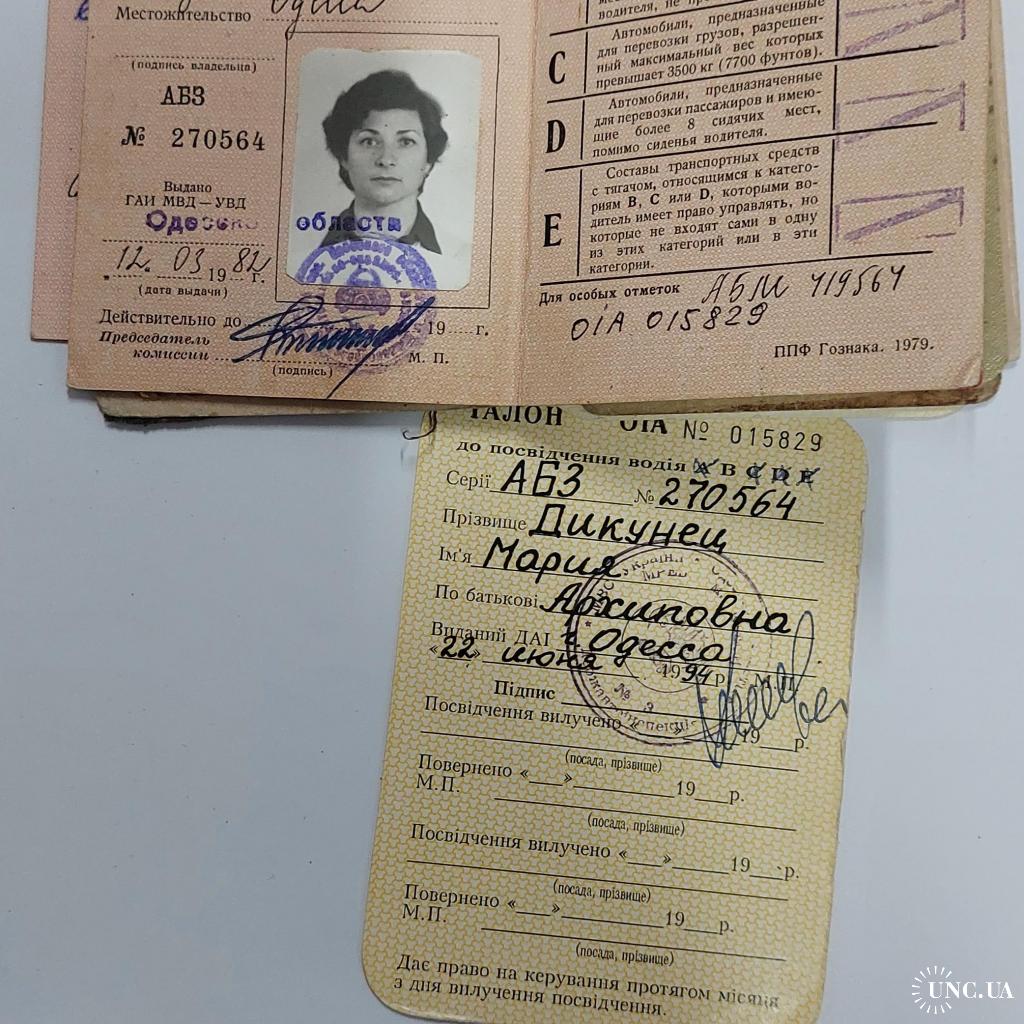 Местожительство Одесса
(подпись владельца)
АБЗ
№ 270564
Выдано
ГАИ МВД — УВД
Одесской области
"12" 03 1982 г.
(дата выдачи)
Действительно до 19 г.
Председатель
комиссии
М. П.
(подпись)
водителя, не
C
Автомобили, предназначенные
для перевозки грузов, разрешен-
ный максимальный вес которых
превышает 3500 кг (7700 фунтов).
D
Автомобили, предназначенные
для перевозки пассажиров и имею-
щие более 8 сидячих мест,
помимо сиденья водителя.
E
Составы транспортных средств
с тягачом, относящимся к катего-
риям B, C или D, которыми во-
дитель имеет право управлять, но
которые не входят сами в одну
из этих категорий или в эти
категории.
Для особых отметок АБМ 419564
ОІА 015829
ППФ Гознака. 1979.
ТАЛОН ОІА № 015829
до посвідчення водія A B C D E
Серії АБЗ № 270564
Прізвище Дикунец
Ім'я Мария
По батькові Архиповна
Виданий ДАІ г. Одесса
«22» июня 1994 р. М.П.
Підпис
Посвідчення вилучено « » 19 р.
(посада, прізвище)
Повернено « » 19 р.
М.П.
(посада, прізвище)
Посвідчення вилучено « » 19 р.
(посада, прізвище)
Повернено « » 19 р.
М.П.
(посада, прізвище)
Дає право на керування протягом місяця
з дня вилучення посвідчення.
UNC.UA